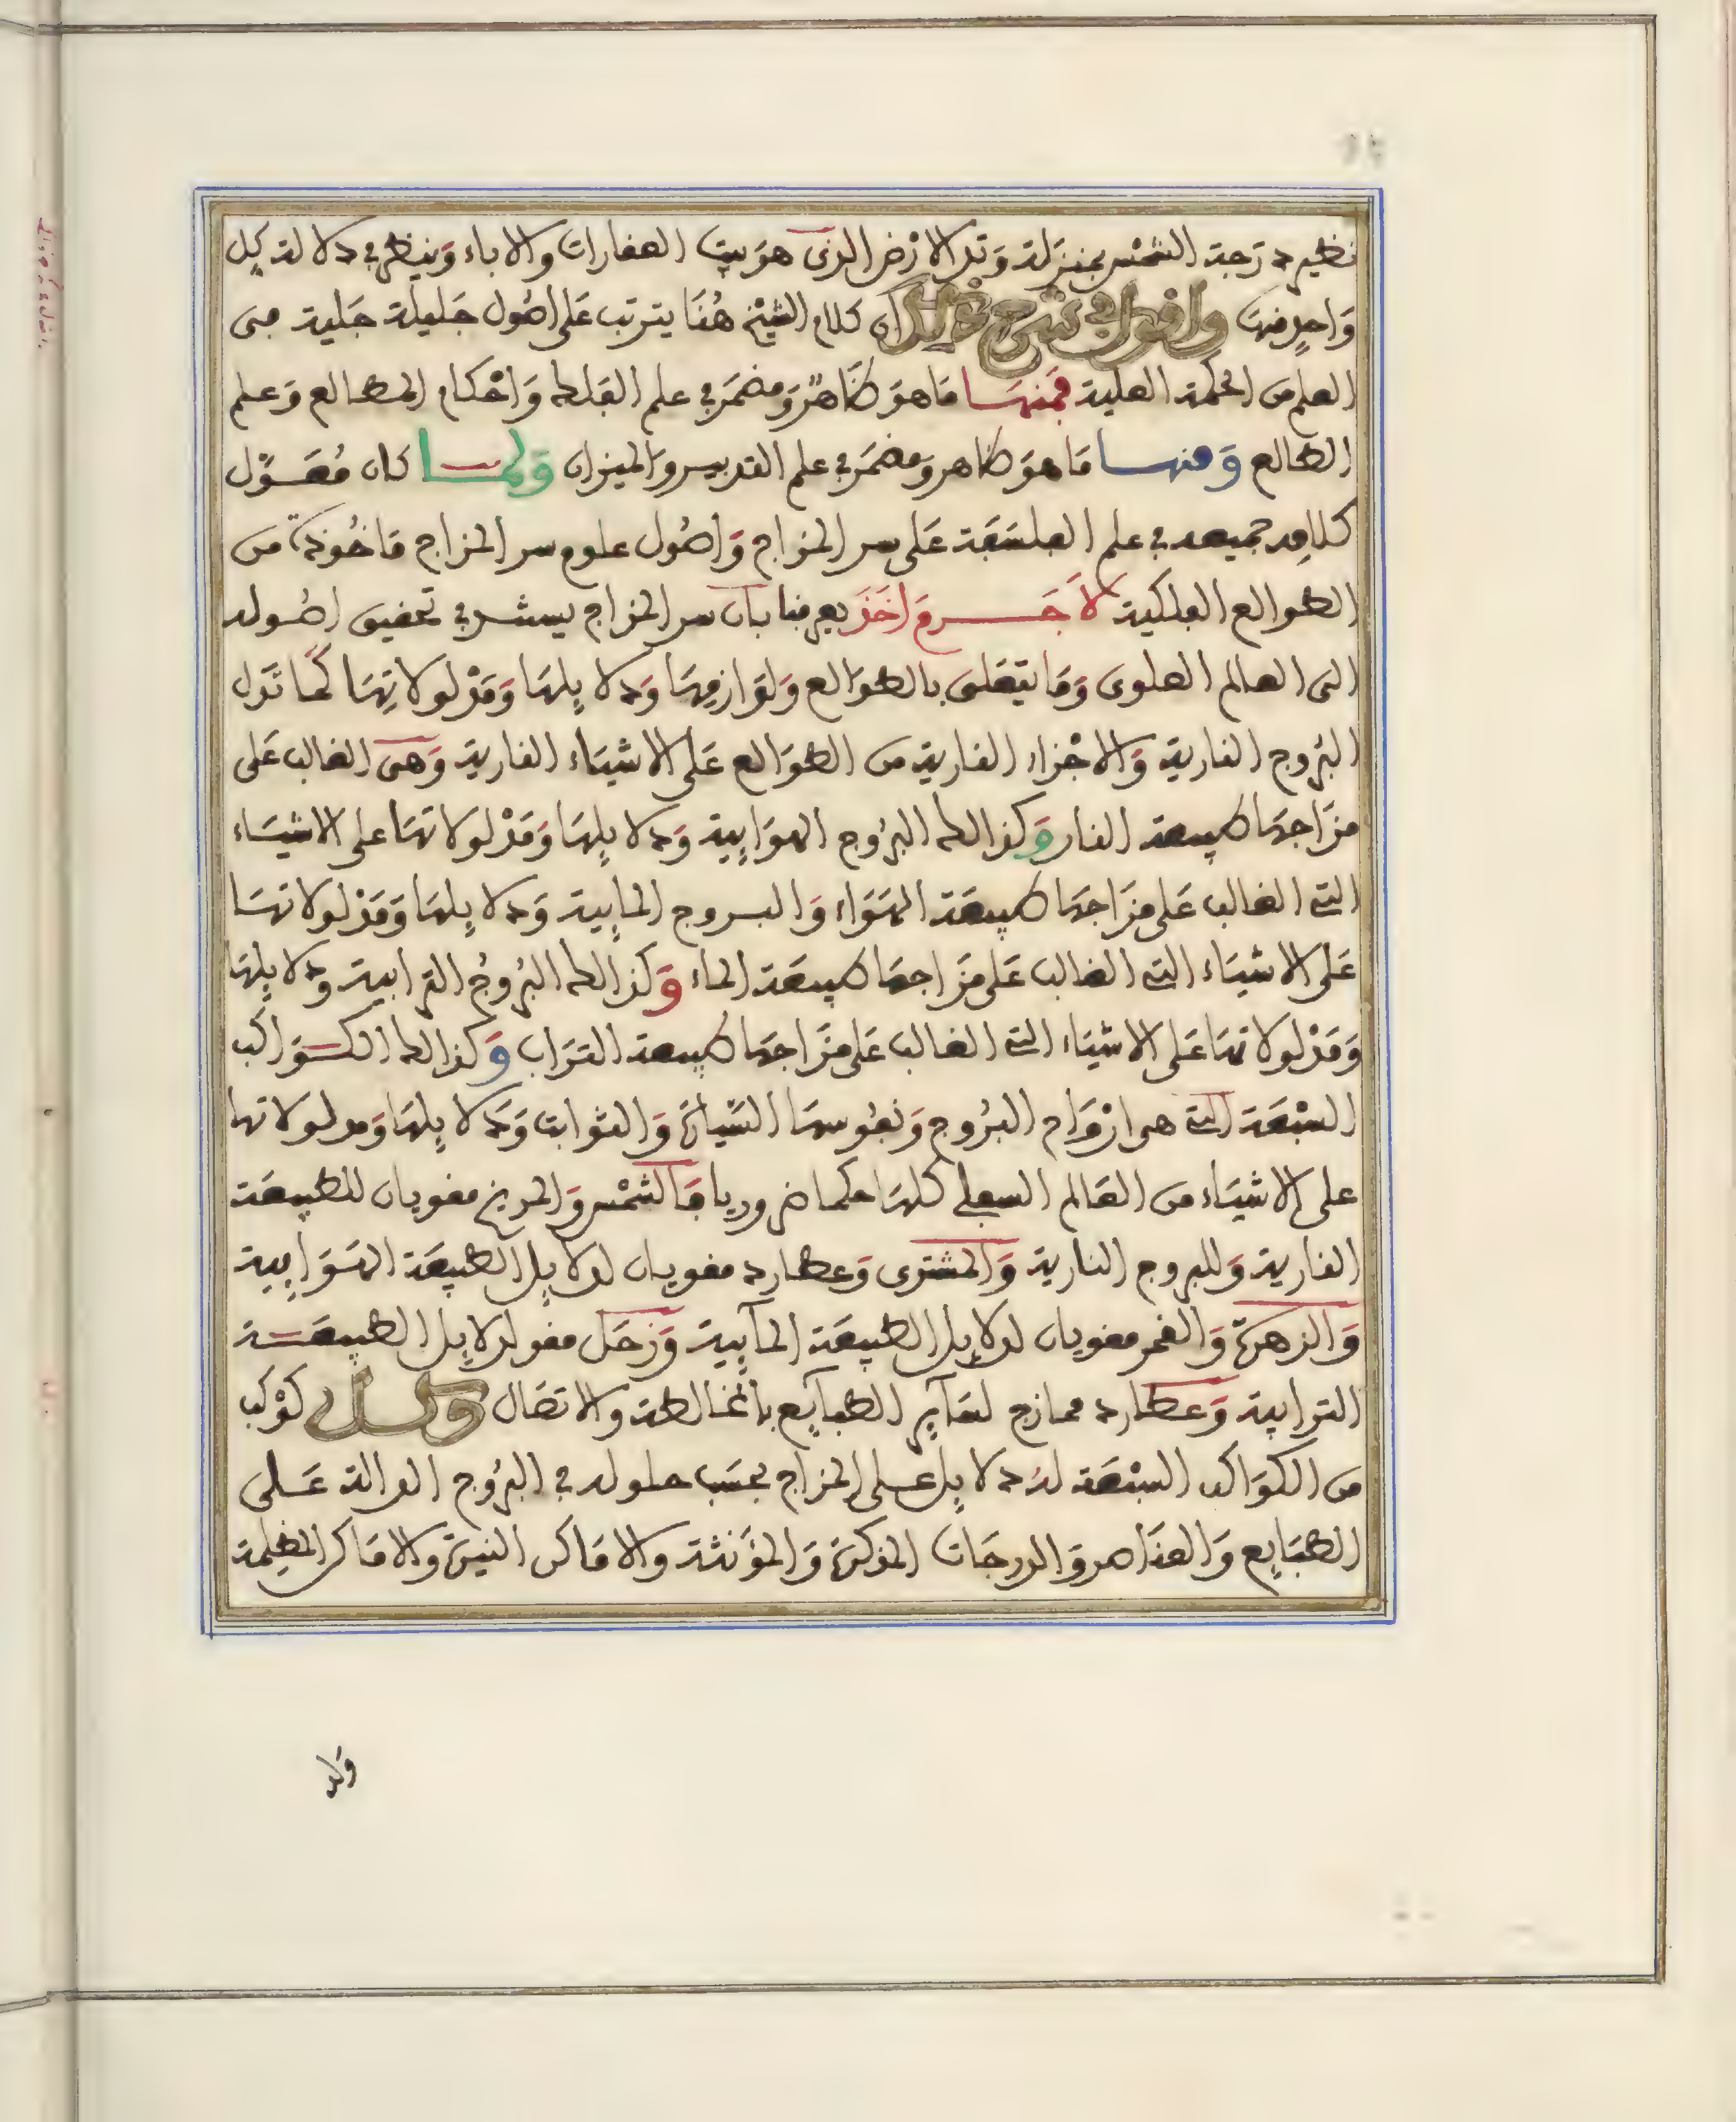 نظير درجة الشمس بمنزلة وتد الارض الذى هو بيت العقارات والاباء وينظر في دلالة كل
واحد منها واقول في شرح ذلك ان كلام الشيخ هنا يترتب على اصول جليلة جلية من
العلم من الحكمة العلية فمنها ما هو ظاهر ومضمر في علم الفلك واحكام المطالع وعلم
الطالع ومنها ما هو ظاهر ومضمر في علم التدبير والميزان ولما كان معول
كلامه جميعه في علم الفلسفة على سر المزاج واصول علوم سر المزاج ماخوذة من
الطوالع الفلكية لا جرم واخذ يعرفنا بان سر المزاج يستشر في تحقيق اصوله
الى العالم العلوى وما يتعلق بالطوالع ولوازمها ودلايلها ومدلولاتها كما تدل
البروج النارية والاجزاء النارية من الطوالع على الاشياء النارية وهى الغالب على
مزاجها طبيعة النار وكذالك البروج الهوايية ودلايلها ومدلولاتها على الاشياء
التى الغالب على مزاجها طبيعة الهواء والبروج المايية ودلايلها ومدلولاتها
على الاشياء التى الغالب على مزاجها طبيعة الماء وكذالك البروج الترابية ودلايلها
ومدلولاتها على الاشياء التى الغالب على مزاجها طبيعة التراب وكذالك الكواكب
السبعة التى هى ازواج البروج ونفوسها السيارة والثوابت ودلايلها ومدلولاتها
على الاشياء من العالم السفلى كلها حكما ضروريا فالشمس والمريخ مقويان للطبيعة
النارية وللبروج النارية والمشترى وعطارد مقويان لدلايل الطبيعة الهوايية
والزهرة والقمر مقويان لدلايل الطبيعة المآيية وزحل مقو لدلايل الطبيعة
الترابية وعطارد ممازج لسآير الطبآيع بالمخالطة والاتصال وكل كوكب
من الكواكب السبعة له دلايل على المزاج بحسب حلوله في البروج الدالة على
الطبايع والعناصر والدرجات المذكرة والمؤنثة والاماكن النيرة والاماكن المظلمة
ولا